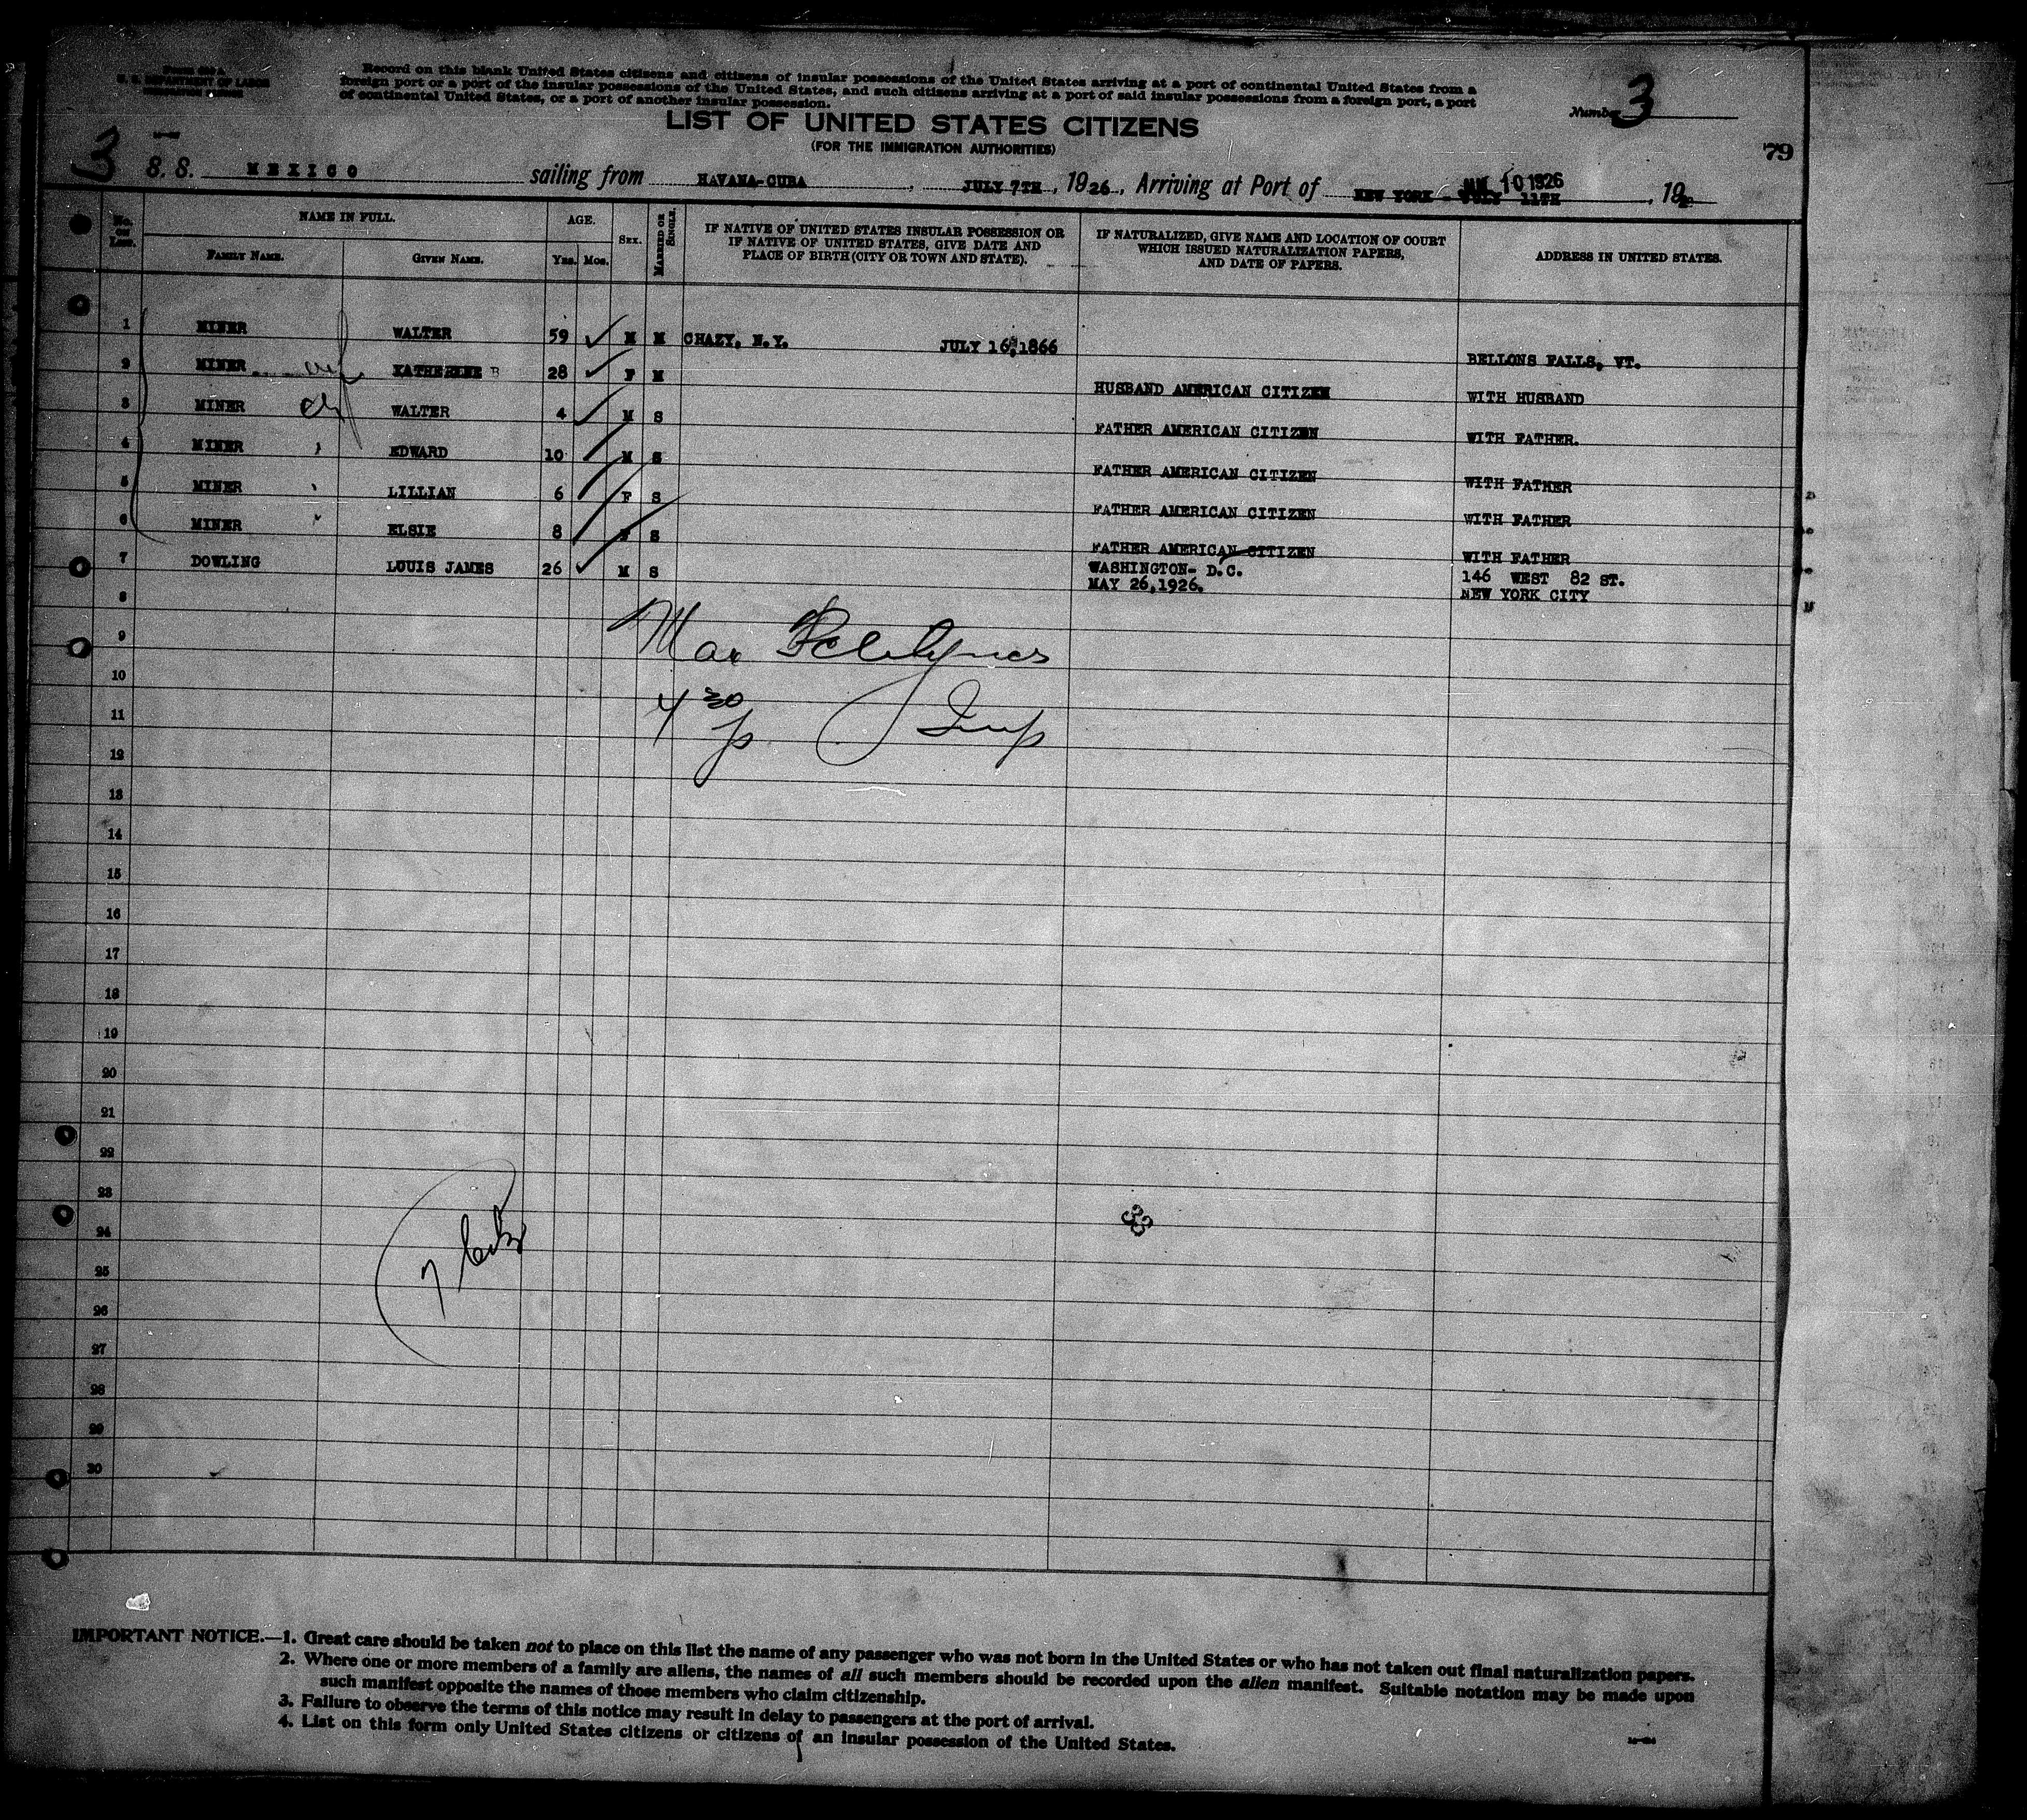 U. S. DEPARTMENT OF LABOR
Record on this blank United States citizens and citizens of insular possessions of the United States arriving at a port of continental United States from a
foreign port or a port of the insular possessions of the United States, and such citizens arriving at a port of said insular possessions from a foreign port, a port
of continental United States, or a port of another insular possession.
Number 3
LIST OF UNITED STATES CITIZENS
(FOR THE IMMIGRATION AUTHORITIES)
79
3
S.S. MEXICO sailing from HAVANA-CUBA, JULY 7TH, 1926, Arriving at Port of NEW YORK - JULY 11TH, 19
10 1926
No. on List.
NAME IN FULL.
AGE.
SEX.
MARRIED OR SINGLE.
IF NATIVE OF UNITED STATES INSULAR POSSESSION OR
IF NATIVE OF UNITED STATES, GIVE DATE AND
PLACE OF BIRTH (CITY OR TOWN AND STATE).
IF NATURALIZED, GIVE NAME AND LOCATION OF COURT
WHICH ISSUED NATURALIZATION PAPERS,
AND DATE OF PAPERS.
ADDRESS IN UNITED STATES.
FAMILY NAME. GIVEN NAME. Yrs. Mos.
1 MINER WALTER 59 M M CHAZY, N.Y. JULY 16, 1866 BELLONS FALLS, VT.
2 MINER KATHERINE B 28 F M HUSBAND AMERICAN CITIZEN WITH HUSBAND
3 MINER WALTER 4 M S FATHER AMERICAN CITIZEN WITH FATHER.
4 MINER EDWARD 10 M S FATHER AMERICAN CITIZEN WITH FATHER
5 MINER LILLIAN 6 F S FATHER AMERICAN CITIZEN WITH FATHER
6 MINER ELSIE 8 F S FATHER AMERICAN CITIZEN WITH FATHER
7 DOWLING LOUIS JAMES 26 M S WASHINGTON- D.C. 146 WEST 82 ST.
MAY 26, 1926. NEW YORK CITY
8
9 Max
10
11 4 30 p Insp
12
13
14
15
16
17
18
19
20
21
22
23
33
24
7
25
26
27
28
29
30
IMPORTANT NOTICE.—1. Great care should be taken not to place on this list the name of any passenger who was not born in the United States or who has not taken out final naturalization papers.
2. Where one or more members of a family are aliens, the names of all such members should be recorded upon the alien manifest. Suitable notation may be made upon
such manifest opposite the names of those members who claim citizenship.
3. Failure to observe the terms of this notice may result in delay to passengers at the port of arrival.
4. List on this form only United States citizens or citizens of an insular possession of the United States.